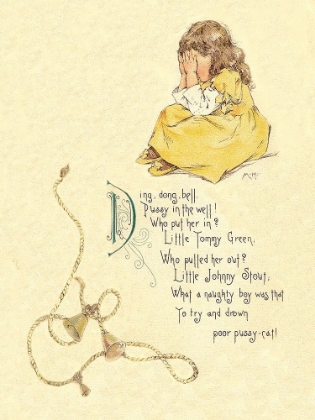 McMc
Ding, dong, bell,
Pussy in the well!
Who put her in?
Little Tommy Green,
Who pulled her out?
Little Johnny Stout,
What a naughty boy was that
To try and drown
poor pussy-cat!